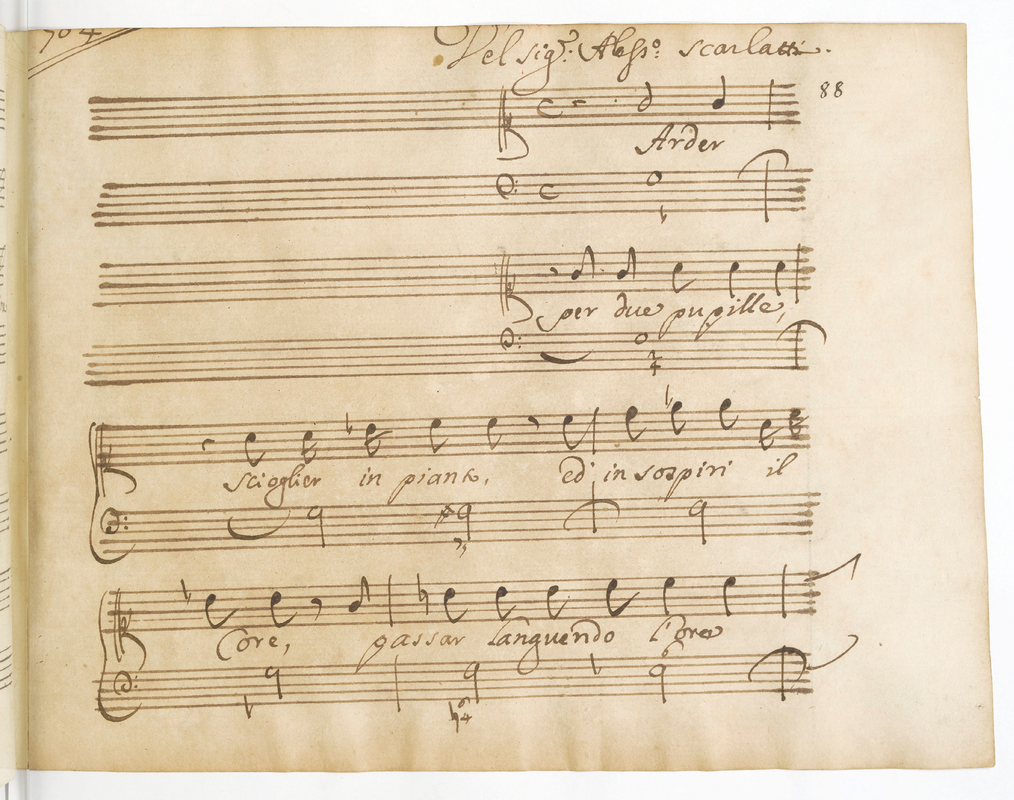 704
Del sig.r Aless.o Scarlatti.
88
Arder
per due pupille,
scioglier in pianto, ed' in sospiri il
Core, passar languendo l'ore